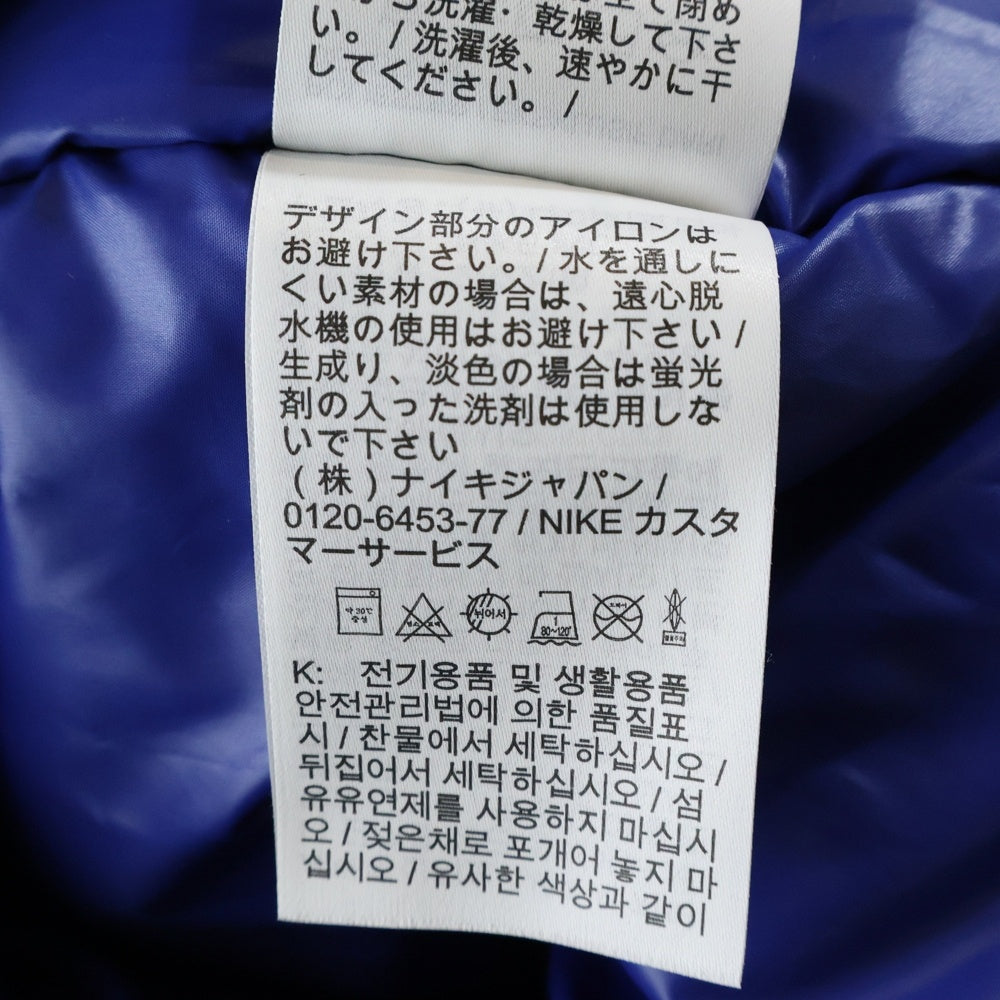 洗濯・乾燥して下さ
い。/ 洗濯後、速やかに干
してください。/
デザイン部分のアイロンは
お避け下さい。/ 水を通しに
くい素材の場合は、遠心脱
水機の使用はお避け下さい /
生成り、淡色の場合は蛍光
剤の入った洗剤は使用しな
いで下さい
(株)ナイキジャパン /
0120-6453-77 / NIKE カスタ
マーサービス
약 30℃ 중성 뒤집어서 1 80~120℃ 드라이
K: 전기용품 및 생활용품
안전관리법에 의한 품질표
시 / 찬물에서 세탁하십시오 /
뒤집어서 세탁하십시오 / 섬
유유연제를 사용하지 마십시
오 / 젖은채로 포개어 놓지 마
십시오 / 유사한 색상과 같이